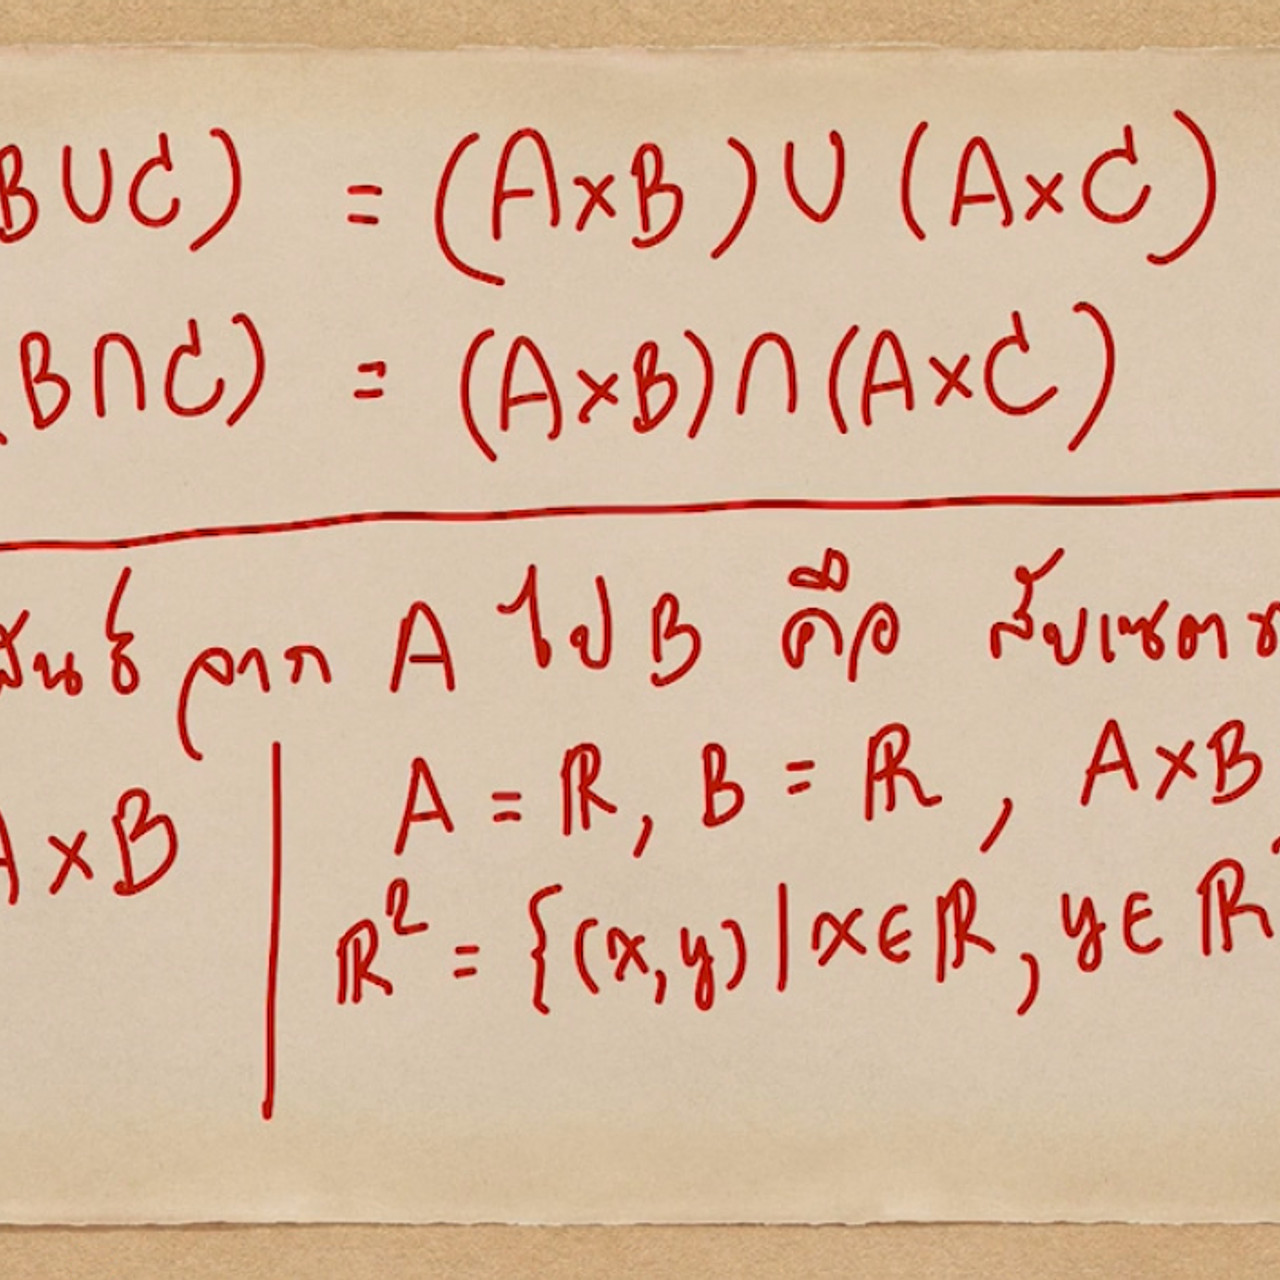 B∪C) = (A×B)∪(A×C)
(B∩C) = (A×B)∩(A×C)
จาก A ไป B คือ สับเซต
A×B
A = ℝ, B = ℝ, A×B
ℝ² = {(x,y) | x∈ℝ, y∈ℝ